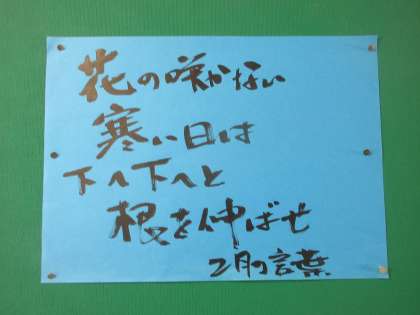 花の咲かない
寒い日は
下へ下へと
根を伸ばせ
2月の言葉